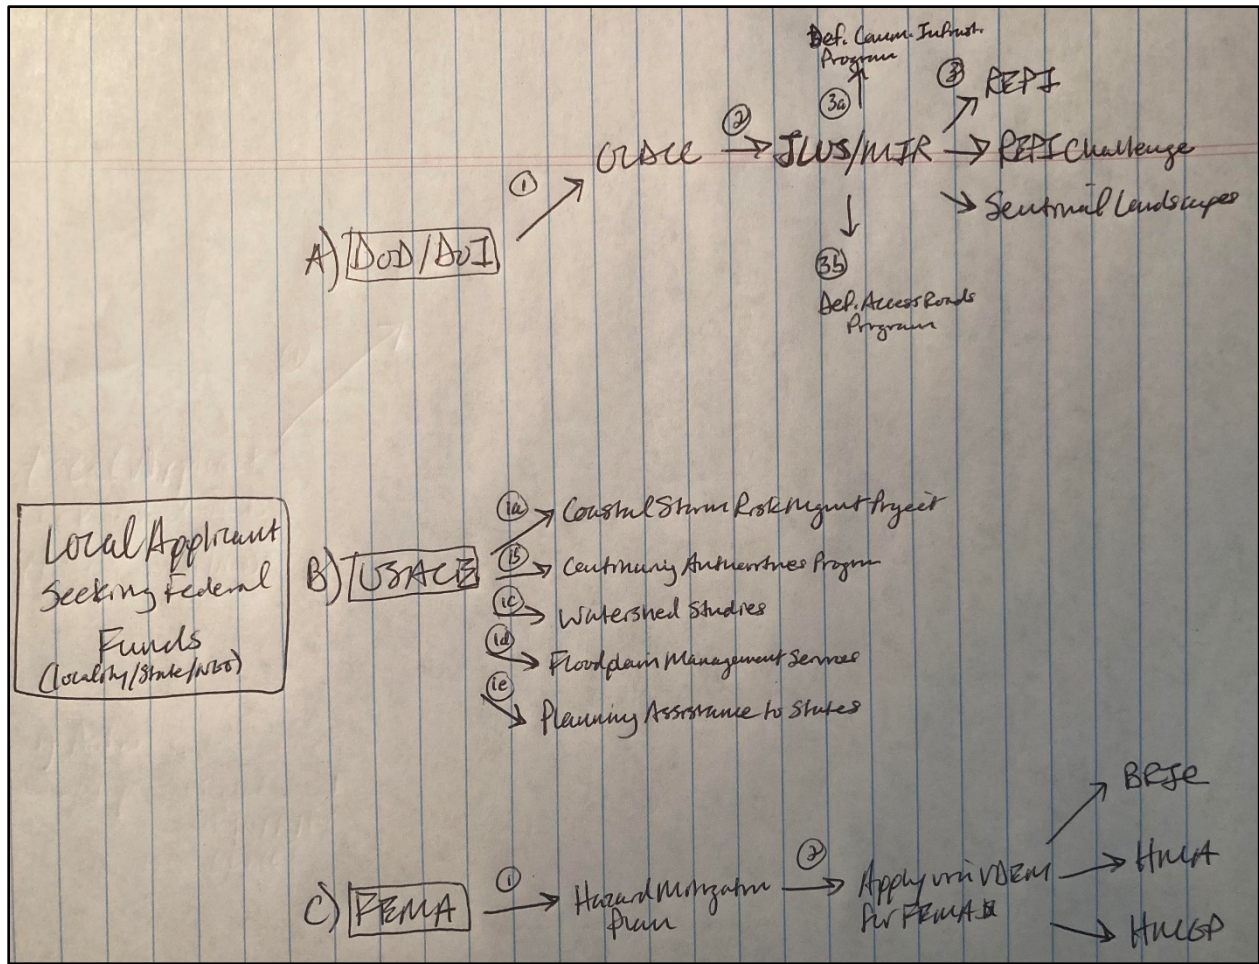 Def. Comm. Infrast.
Program
3a
3
REPI
2
OLDCC
JLUS/MIR
REPI Challenge
Sentinal Landscapes
1
A) DoD/DoI
3b
Def. Access Roads
Program
Local Applicant
Seeking Federal
Funds
(locality/State/NGO)
B) USACE
1a
Coastal Storm Risk Mgmt Project
1b
Continuing Authorities Program
1c
Watershed Studies
1d
Floodplain Management Services
1e
Planning Assistance to States
C) FEMA
1
Hazard Mitigation
Plan
2
Apply via VDEM
for FEMA
BRIC
HMA
HMGP